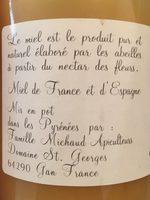 Le miel est le produit pur et
naturel élaboré par les abeilles
à partir du nectar des fleurs.
Miel de France et d'Espagne
Mis en pot
dans les Pyrénées par :
Famille Michaud Apiculteurs
Domaine St. Georges
64290 Gan France